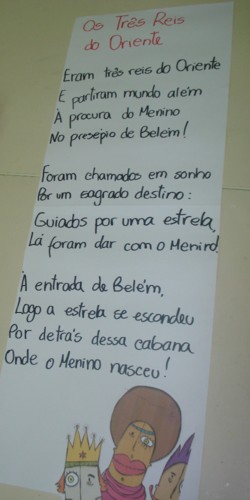 Os Três Reis
do Oriente
Eram três reis do Oriente
E partiram mundo além
À procura do Menino
No presépio de Belém!
Foram chamados em sonho
Por um sagrado destino:
Guiados por uma estrela,
Lá foram dar com o Menino!
À entrada de Belém,
Logo a estrela se escondeu
Por detrás dessa cabana
Onde o Menino nasceu!